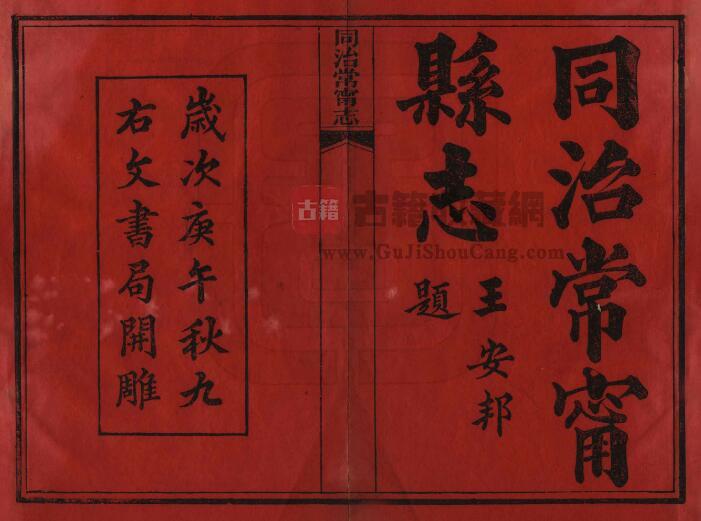 同治常甯
縣志
王安邦
題
同治常甯志
歲次庚午秋九
右文書局開雕
古籍
古籍收藏網
www.GuJiShouCang.com